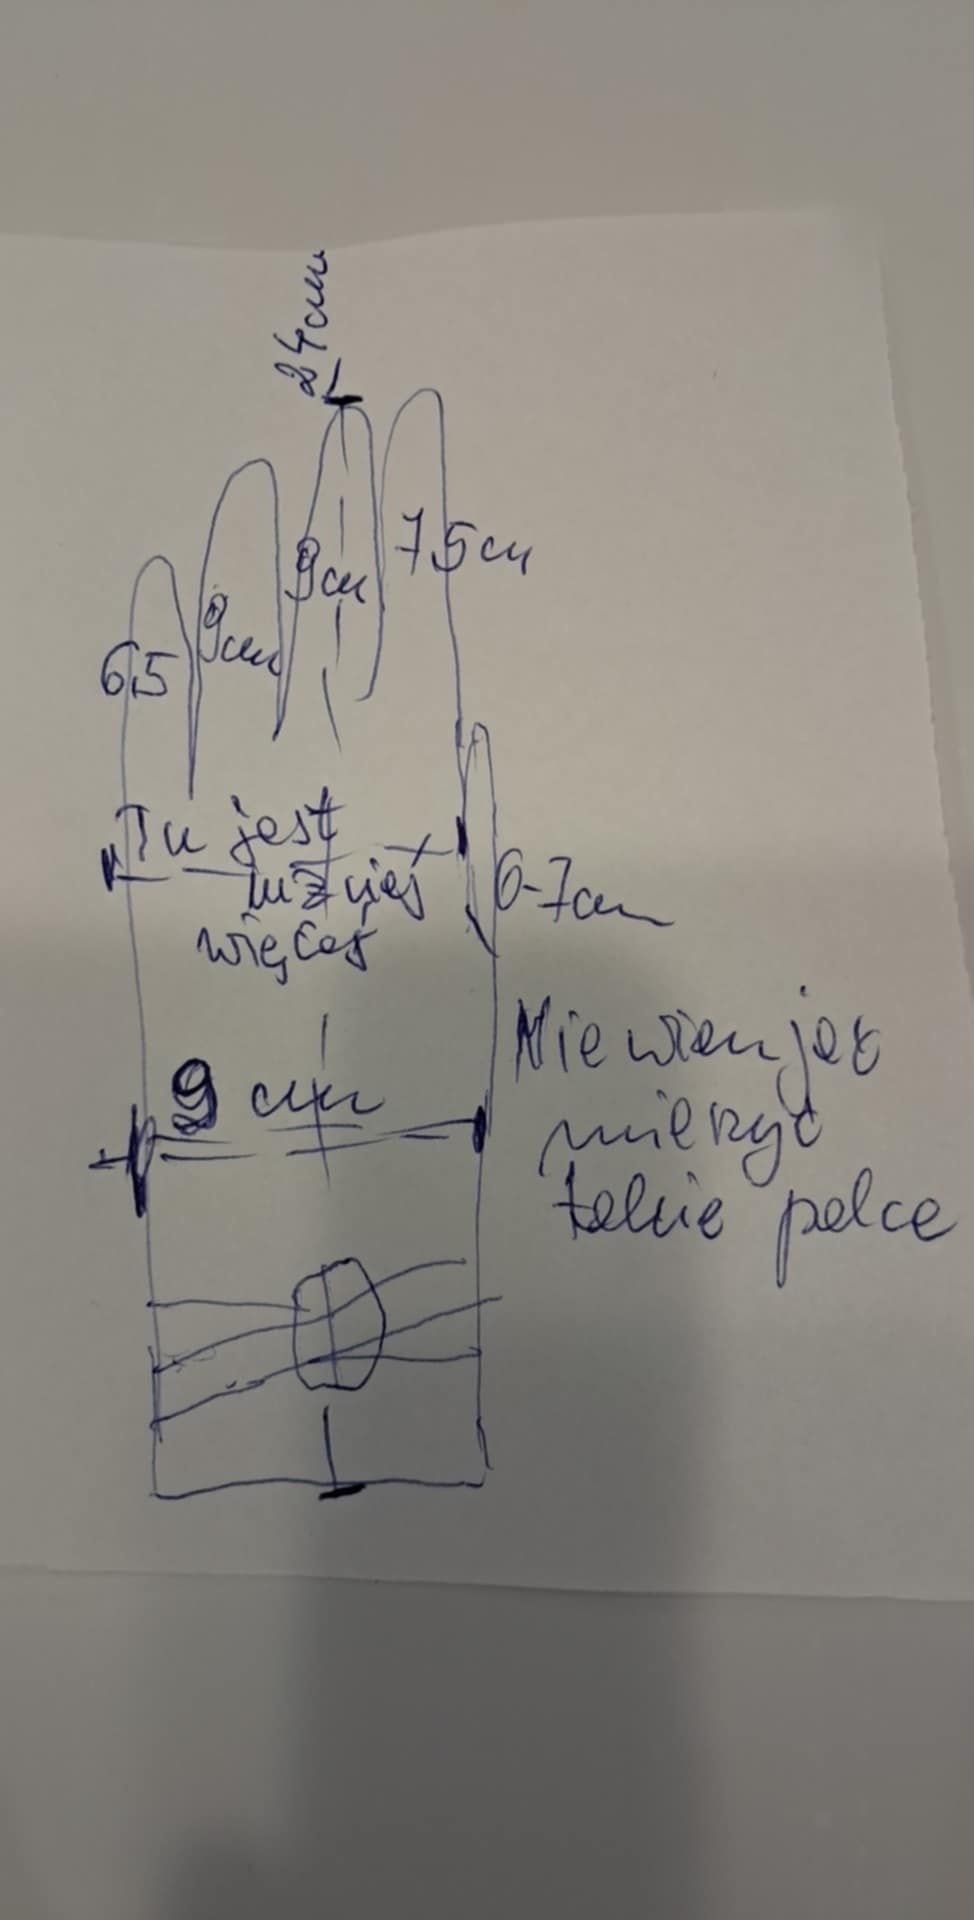 24cm
7,5cm
9cm
9cm
6,5
Tu jest
mniej
więcej
6-7cm
9 cm
Nie wiem jak
mierzyć
takie palce